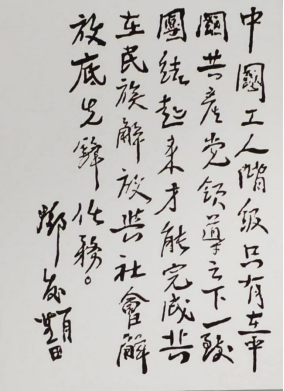 中國工人階級只有在中
國共產党領導之下一致
團結起来才能完成其
在民族解放與社會解
放底先鋒任務。
鄧